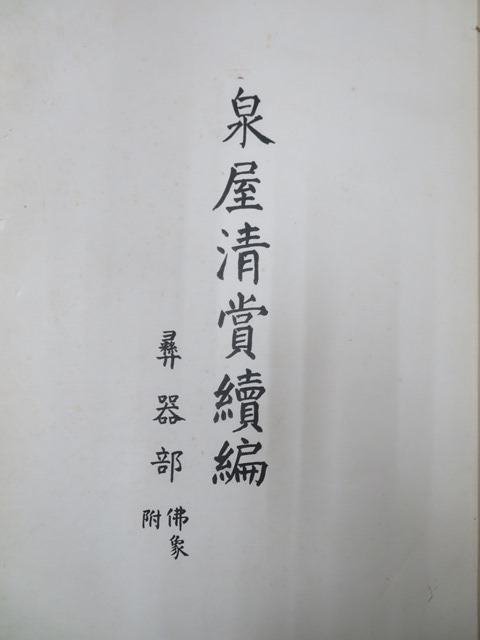 泉屋清賞續編
彝器部
佛象
附